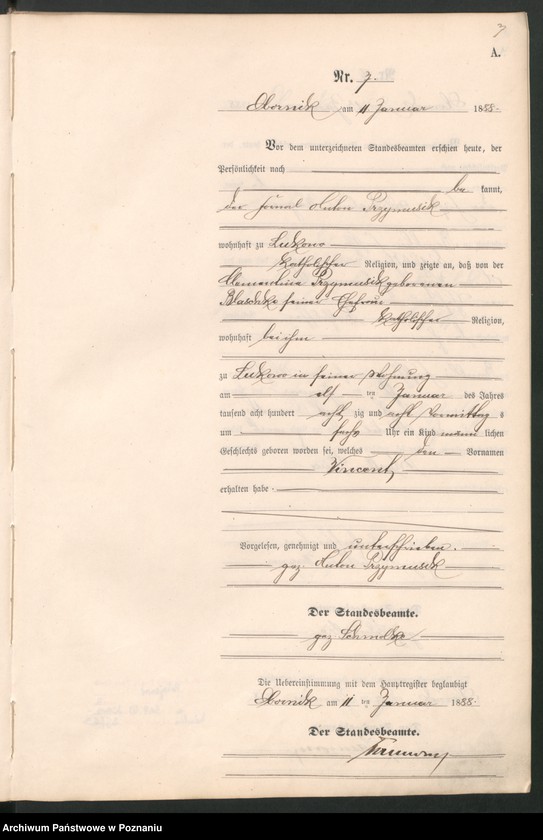 3
A.
Nr. 7.
Obornik am 11 Januar 1888.
Vor dem unterzeichneten Standesbeamten erschien heute, der
Persönlichkeit nach
be kannt,
der Fornal Anton Przymusik
wohnhaft zu Lukowo
katholischer Religion, und zeigte an, daß von der
Clementine Przymusik geborenen
Blaschke seiner Ehefrau
katholischer Religion,
wohnhaft bei ihm
zu Lukowo in seiner Wohnung
am elf ten Januar des Jahres
tausend acht hundert acht zig und acht Vormittag s
um sechs Uhr ein Kind männ lichen
Geschlechts geboren worden sei, welches den Vornamen
Vincent
erhalten habe.
Vorgelesen, genehmigt und unterschrieben.
gez. Anton Przymusik
Der Standesbeamte.
gez
Die Uebereinstimmung mit dem Hauptregister beglaubigt
Obornik am 11 ten Januar 1888.
Der Standesbeamte.
Archiwum Państwowe w Poznaniu